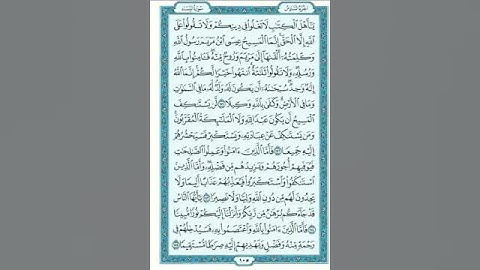 الجزء السادس
سورة النساء
يَٰٓأَهْلَ ٱلْكِتَٰبِ لَا تَغْلُوا۟ فِى دِينِكُمْ وَلَا تَقُولُوا۟ عَلَى
ٱللَّهِ إِلَّا ٱلْحَقَّ إِنَّمَا ٱلْمَسِيحُ عِيسَى ٱبْنُ مَرْيَمَ رَسُولُ ٱللَّهِ
وَكَلِمَتُهُۥٓ أَلْقَىٰهَآ إِلَىٰ مَرْيَمَ وَرُوحٌ مِّنْهُ فَـَٔامِنُوا۟ بِٱللَّهِ
وَرُسُلِهِۦ وَلَا تَقُولُوا۟ ثَلَٰثَةٌ ٱنتَهُوا۟ خَيْرًا لَّكُمْ إِنَّمَا ٱللَّهُ
إِلَٰهٌ وَٰحِدٌ سُبْحَٰنَهُۥٓ أَن يَكُونَ لَهُۥ وَلَدٌ لَّهُۥ مَا فِى ٱلسَّمَٰوَٰتِ
وَمَا فِى ٱلْأَرْضِ وَكَفَىٰ بِٱللَّهِ وَكِيلًا ١٧١ لَّن يَسْتَنكِفَ
ٱلْمَسِيحُ أَن يَكُونَ عَبْدًا لِّلَّهِ وَلَا ٱلْمَلَٰٓئِكَةُ ٱلْمُقَرَّبُونَ
وَمَن يَسْتَنكِفْ عَنْ عِبَادَتِهِۦ وَيَسْتَكْبِرْ فَسَيَحْشُرُهُمْ
إِلَيْهِ جَمِيعًا ١٧٢ فَأَمَّا ٱلَّذِينَ ءَامَنُوا۟ وَعَمِلُوا۟ ٱلصَّٰلِحَٰتِ
فَيُوَفِّيهِمْ أُجُورَهُمْ وَيَزِيدُهُم مِّن فَضْلِهِۦ وَأَمَّا ٱلَّذِينَ
ٱسْتَنكَفُوا۟ وَٱسْتَكْبَرُوا۟ فَيُعَذِّبُهُمْ عَذَابًا أَلِيمًا وَلَا
يَجِدُونَ لَهُم مِّن دُونِ ٱللَّهِ وَلِيًّا وَلَا نَصِيرًا ١٧٣ يَٰٓأَيُّهَا ٱلنَّاسُ
قَدْ جَآءَكُم بُرْهَٰنٌ مِّن رَّبِّكُمْ وَأَنزَلْنَآ إِلَيْكُمْ نُورًا مُّبِينًا
١٧٤ فَأَمَّا ٱلَّذِينَ ءَامَنُوا۟ بِٱللَّهِ وَٱعْتَصَمُوا۟ بِهِۦ فَسَيُدْخِلُهُمْ فِى
رَحْمَةٍ مِّنْهُ وَفَضْلٍ وَيَهْدِيهِمْ إِلَيْهِ صِرَٰطًا مُّسْتَقِيمًا ١٧٥
١٠٥